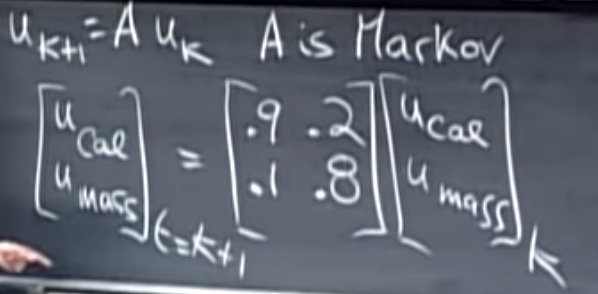 u_{k+1} = A u_k   A is Markov
[u_{Cal}; u_{mass}]_{t=k+1} = [.9 .2; .1 .8] [u_{Cal}; u_{mass}]_k